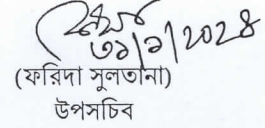 ৩১/১/২০২৪
(ফরিদা সুলতানা)
উপসচিব